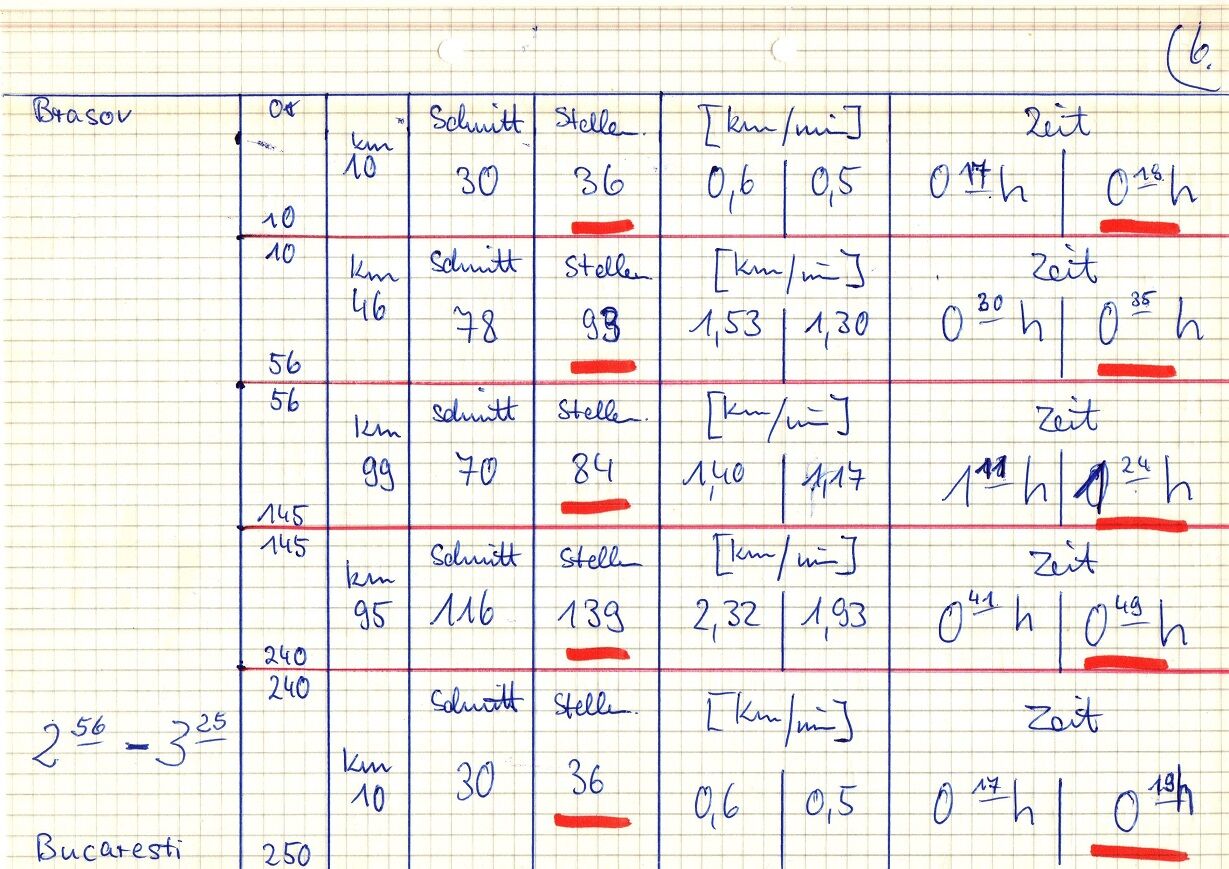 6.
Brasov 0 km Schnitt Stellen. [km/min] Zeit
10 30 36 0,6 0,5 0 17 h 0 18 h
10
10 km Schnitt Stellen [km/min] Zeit
46 78 93 1,53 1,30 0 30 h 0 35 h
56
56 km Schnitt Stellen. [km/min] Zeit
99 70 84 1,40 1,17 1 11 h 1 24 h
145
145 km Schnitt Stellen [km/min] Zeit
95 116 139 2,32 1,93 0 41 h 0 49 h
240
240 Schnitt Stellen. [km/min] Zeit
2 56 - 3 25
km 30 36 0,6 0,5 0 17 h 0 19 h
10
Bucaresti 250